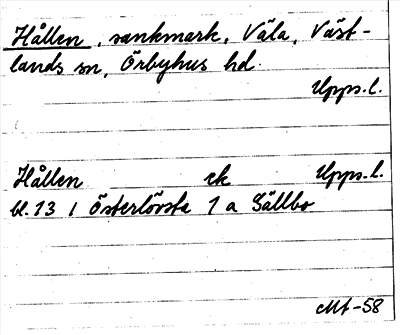 Hållen, sankmark, Väla, Väst-
lands sn, Örbyhus hd.
Upps.l.
Hållen ek Upps.l.
bl. 13 I Österlövsta 1 a Sällbo
Mt-58